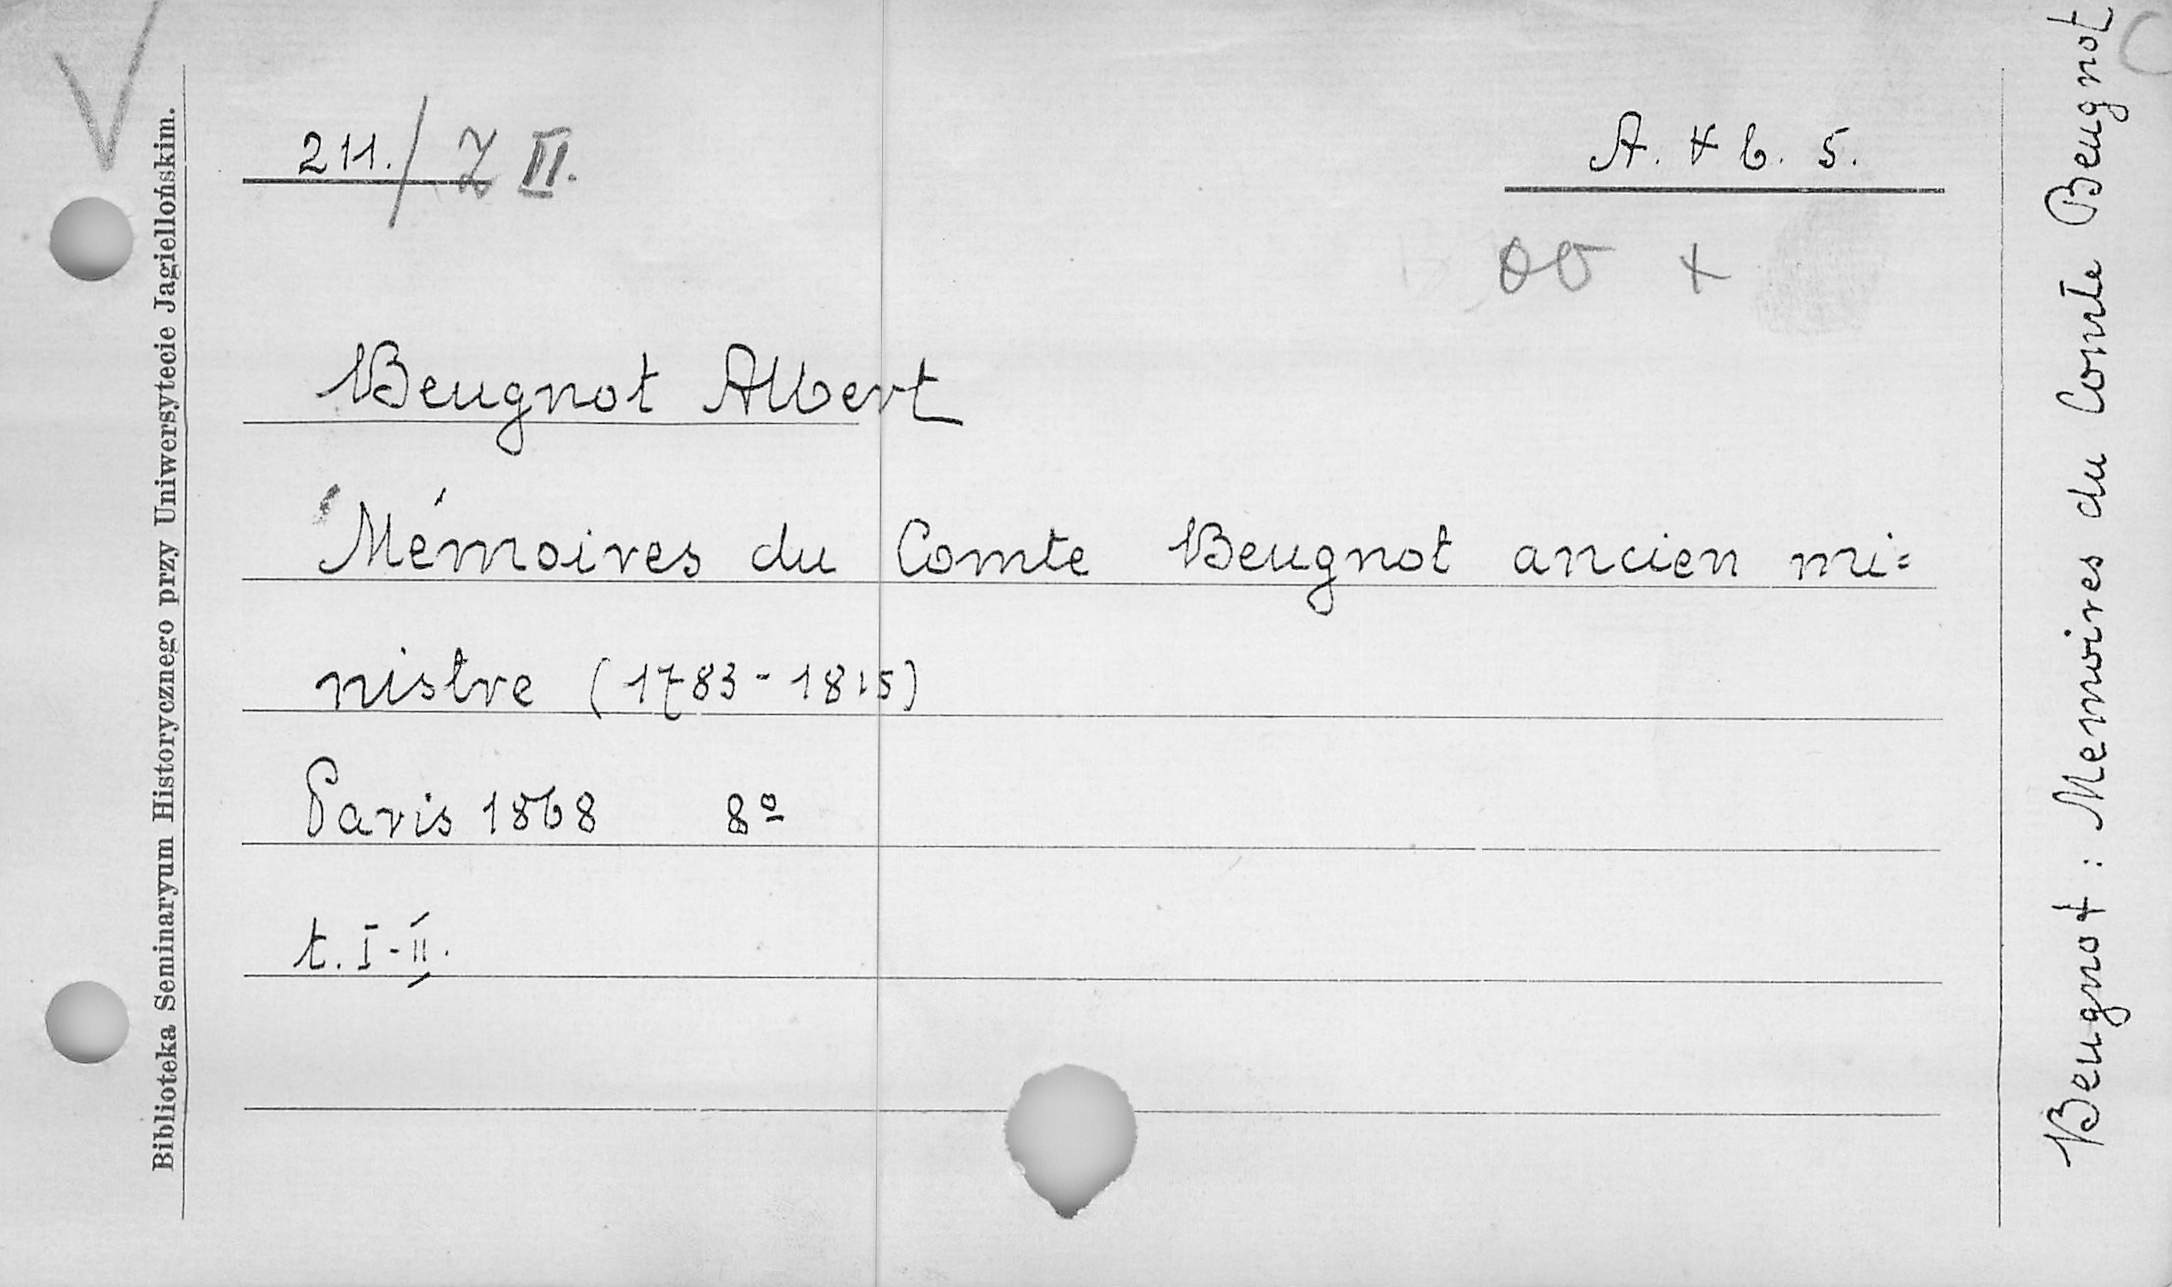 211./ Z II.
A. + b. 5.
Beugnot Albert
Mémoires du Comte Beugnot ancien mi=
nistre (1783-1815)
Paris 1868 8º
t. I-II.
Biblioteka Seminaryum Historycznego przy Uniwersytecie Jagiellońskim.
Beugnot: Memoires du Comte Beugnot